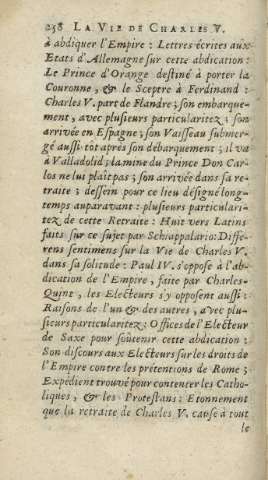 258 LA VIE DE CHARLES V.
à abdiquer l'Empire : Lettres écrites aux
Etats d'Allemagne sur cette abdication :
Le Prince d'Orange destiné à porter la
Couronne , & le Sceptre à Ferdinand :
Charles V. part de Flandre ; son embarque-
ment , avec plusieurs particularitez ; son
arrivée en Espagne ; son Vaisseau submer-
gé aussi tôt après son débarquement ; il va
à Valladolid ; la mine du Prince Don Car-
los ne lui plaît pas ; son arrivée dans sa re-
traite ; dessein pour ce lieu désigné long-
temps auparavant : plusieurs particulari-
tez de cette Retraite : Huit vers Latins
faits sur ce sujet par Schiappalario : Diffé-
rens sentimens sur la Vie de Charles V.
dans sa solitude : Paul IV. s'oppose à l'ab-
dication de l'Empire , faite par Charles-
Quint , les Electeurs s'y opposent aussi :
Raisons de l'un & des autres , avec plu-
sieurs particularitez : Offices de l'Electeur
de Saxe pour soûtenir cette abdication :
Son discours aux Electeurs sur les droits de
l'Empire contre les prétentions de Rome ;
Expédient trouvé pour contenter les Catho-
liques , & les Protestans : Etonnement
que la retraite de Charles V. cause à tout
le